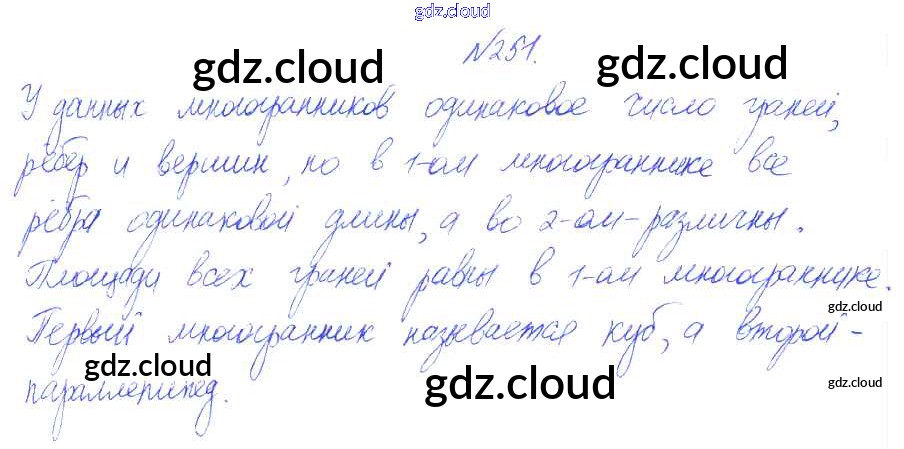 gdz.cloud
№251.
gdz.cloud gdz.cloud
У данных многогранников одинаковое число граней,
рёбер и вершин, но в 1-ом многограннике все
рёбра одинаковой длины, а во 2-ом - различны.
Площади всех граней равны в 1-ом многограннике.
gdz.cloud
Первый многогранник называется куб, а второй -
gdz.cloud gdz.cloud gdz.cloud
параллепипед.